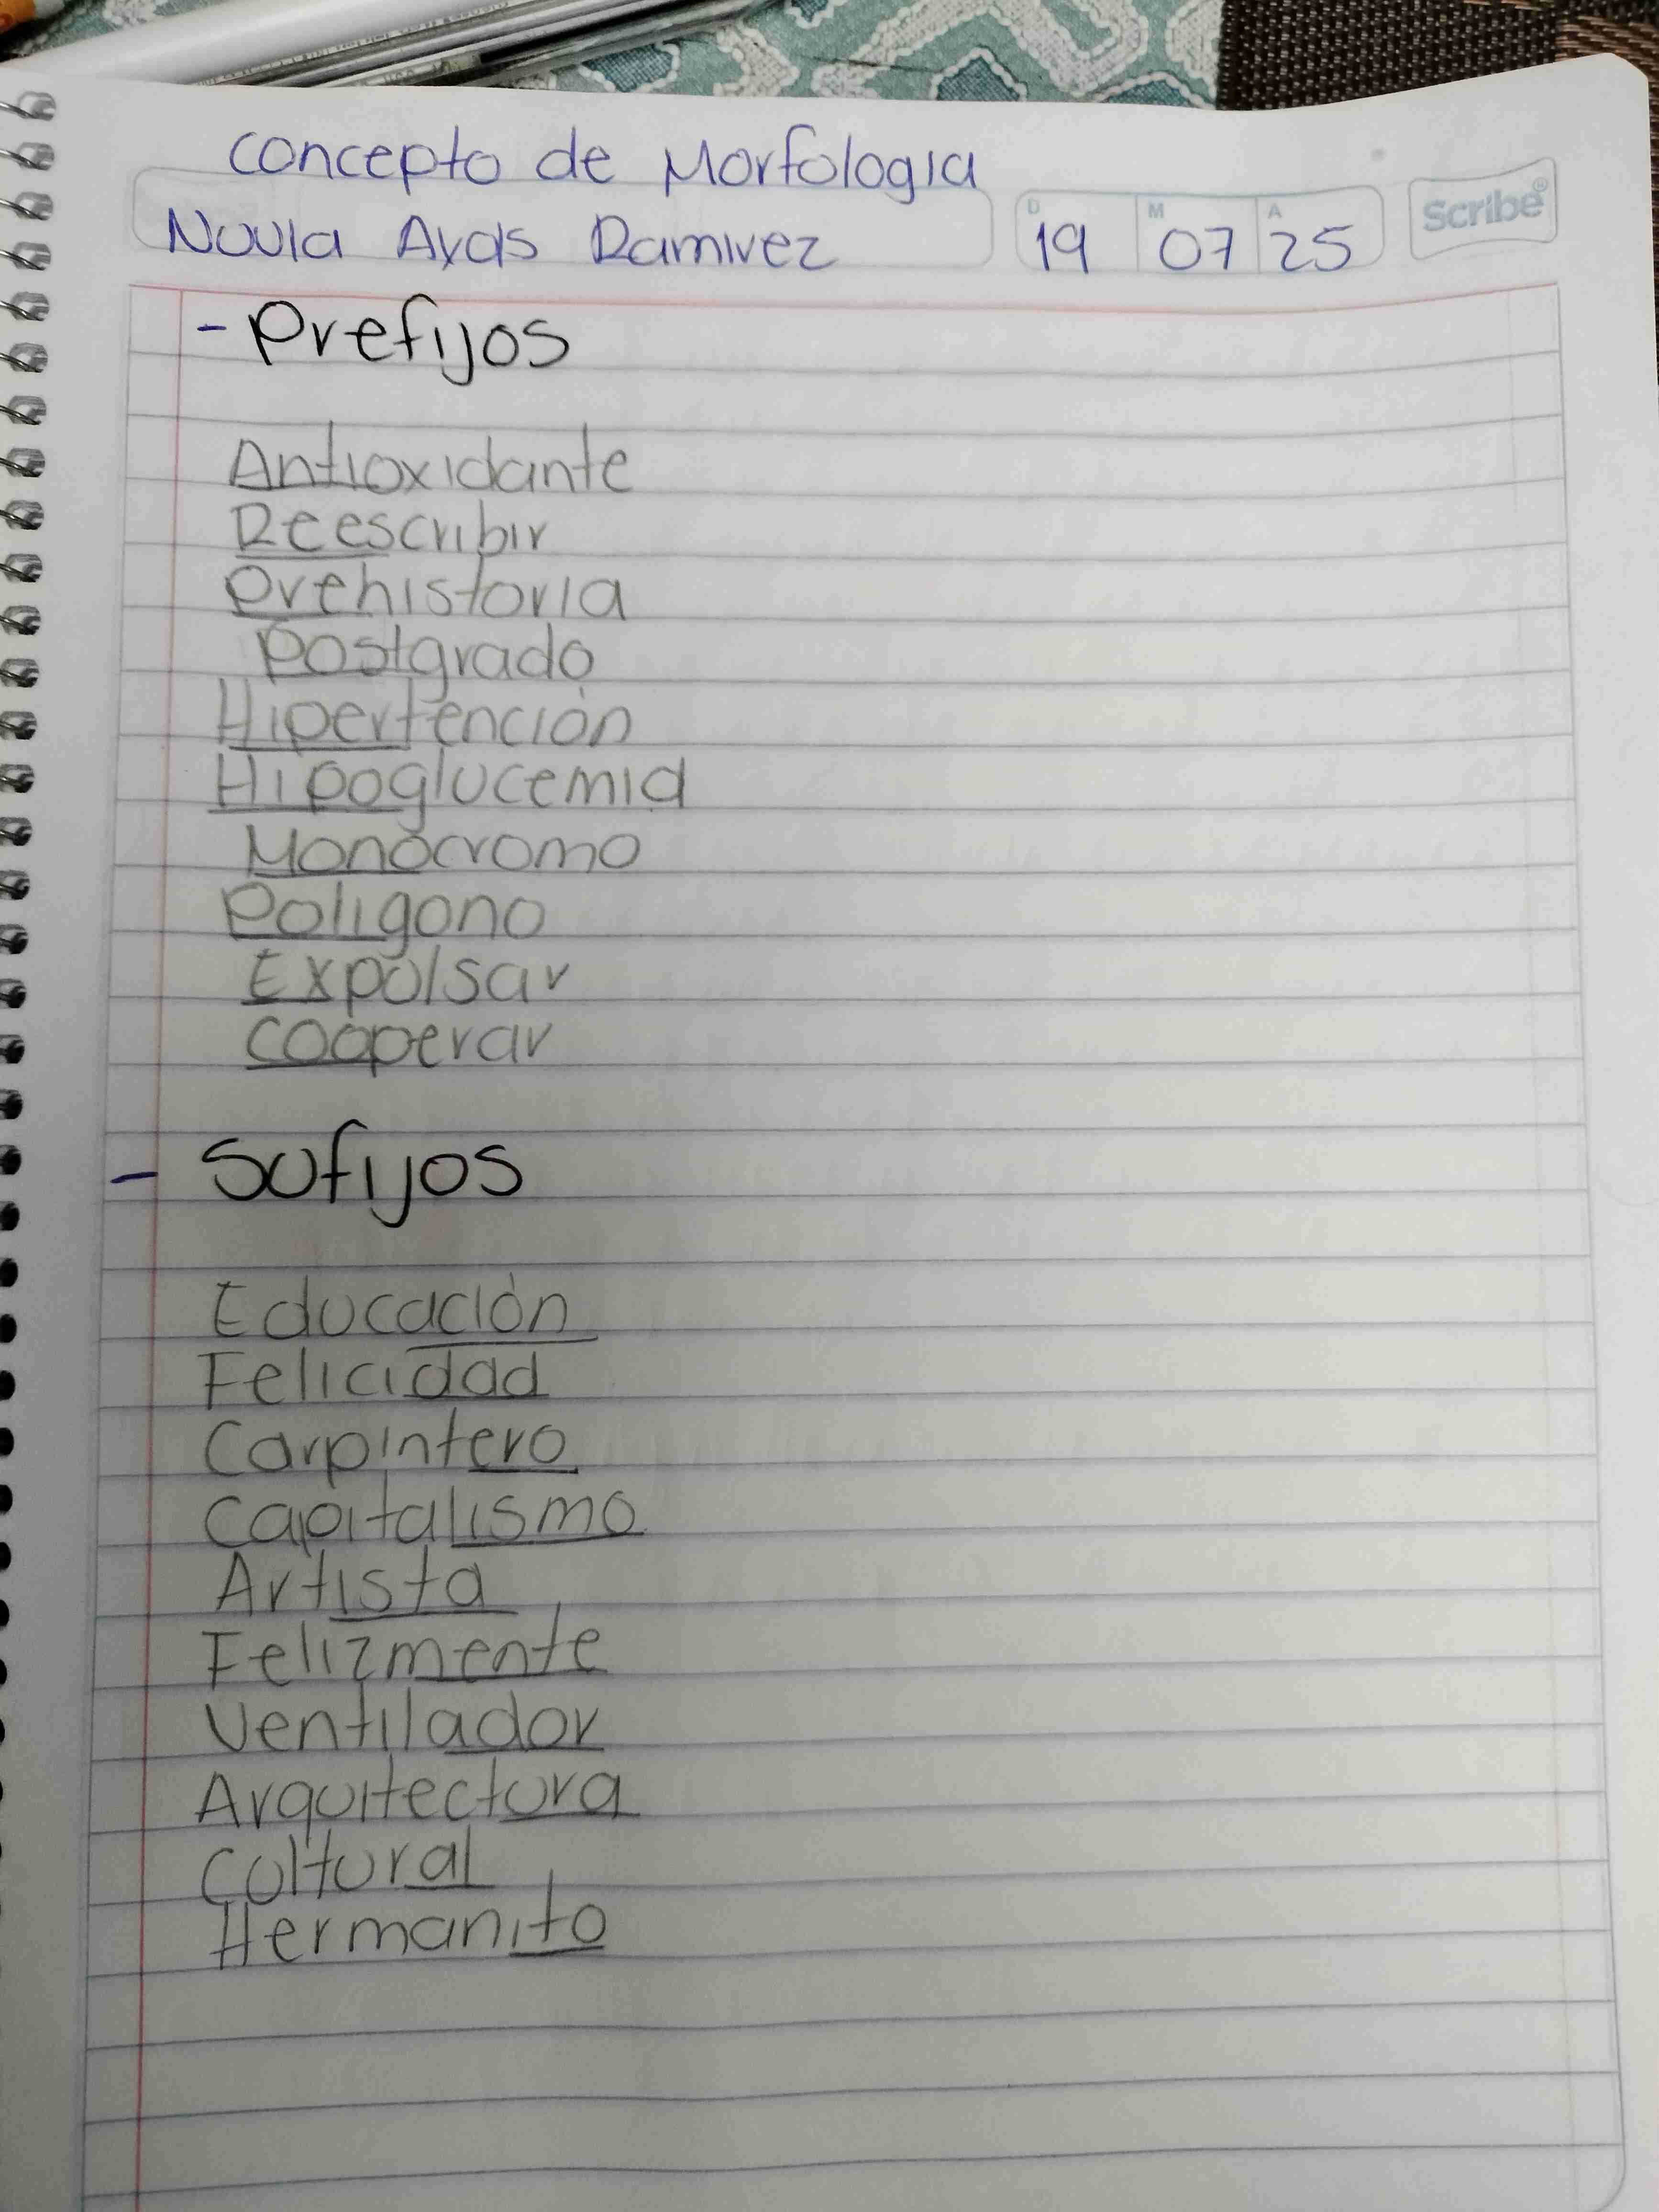 Concepto de Morfologia
D M A Scribe®
Ramirez 19 07 25
- Prefijos
Antioxidante
Reescribir
Prehistoria
Postgrado
Hipertención
Hipoglucemia
Monocromo
Poligono
Expulsar
Cooperar
- Sufijos
Educación
Felicidad
Carpintero
Capitalismo
Artista
Felizmente
Ventilador
Arquitectura
Cultural
Hermanito